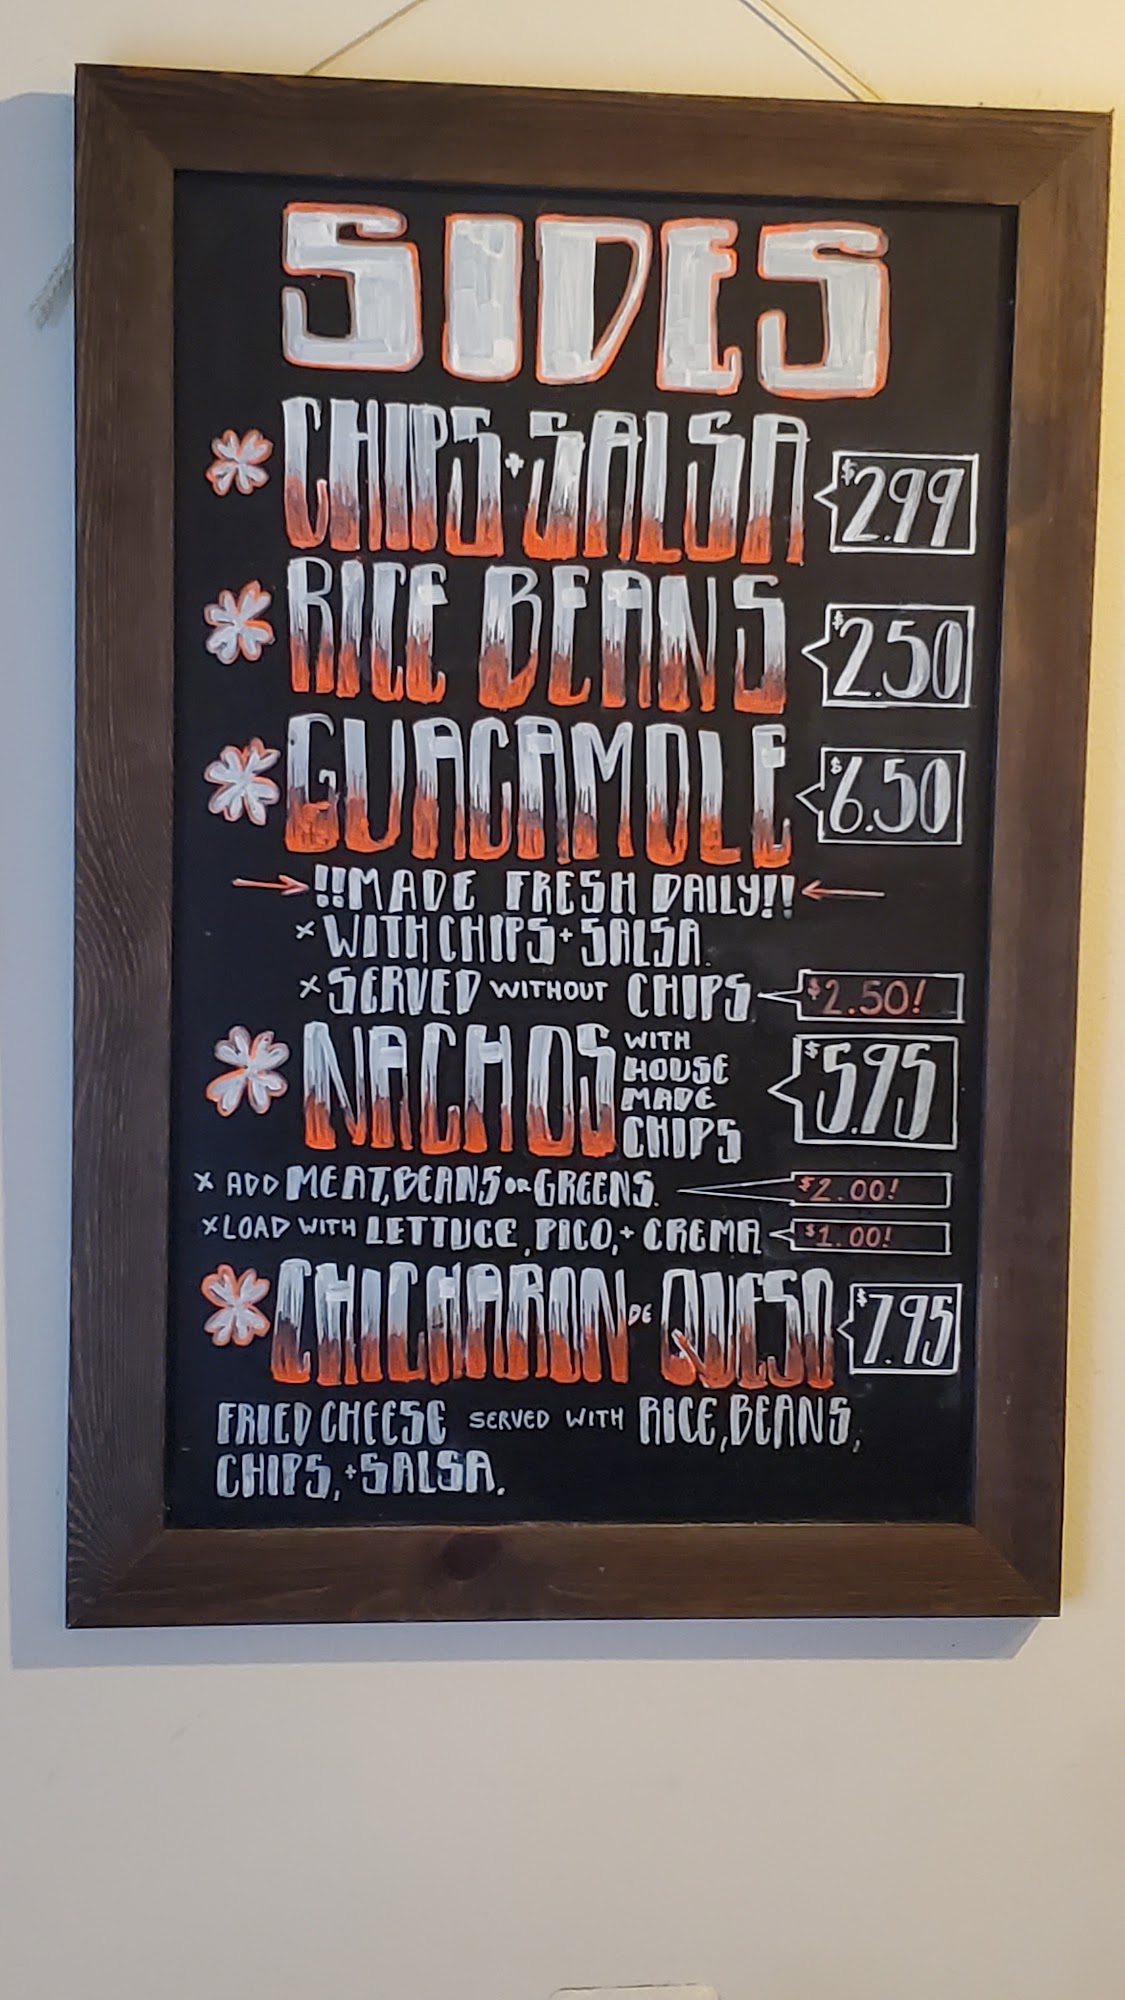 SIDES
CHIPS + SALSA $2.99
RICE BEANS $2.50
GUACAMOLE $6.50
!!MADE FRESH DAILY!!
x WITH CHIPS + SALSA.
x SERVED WITHOUT CHIPS $2.50!
NACHOS WITH HOUSE MADE CHIPS $5.95
x ADD MEAT, BEANS OR GREENS. $2.00!
x LOAD WITH LETTUCE, PICO, + CREMA $1.00!
CHICHARON DE QUESO $7.95
FRIED CHEESE SERVED WITH RICE, BEANS,
CHIPS, + SALSA.